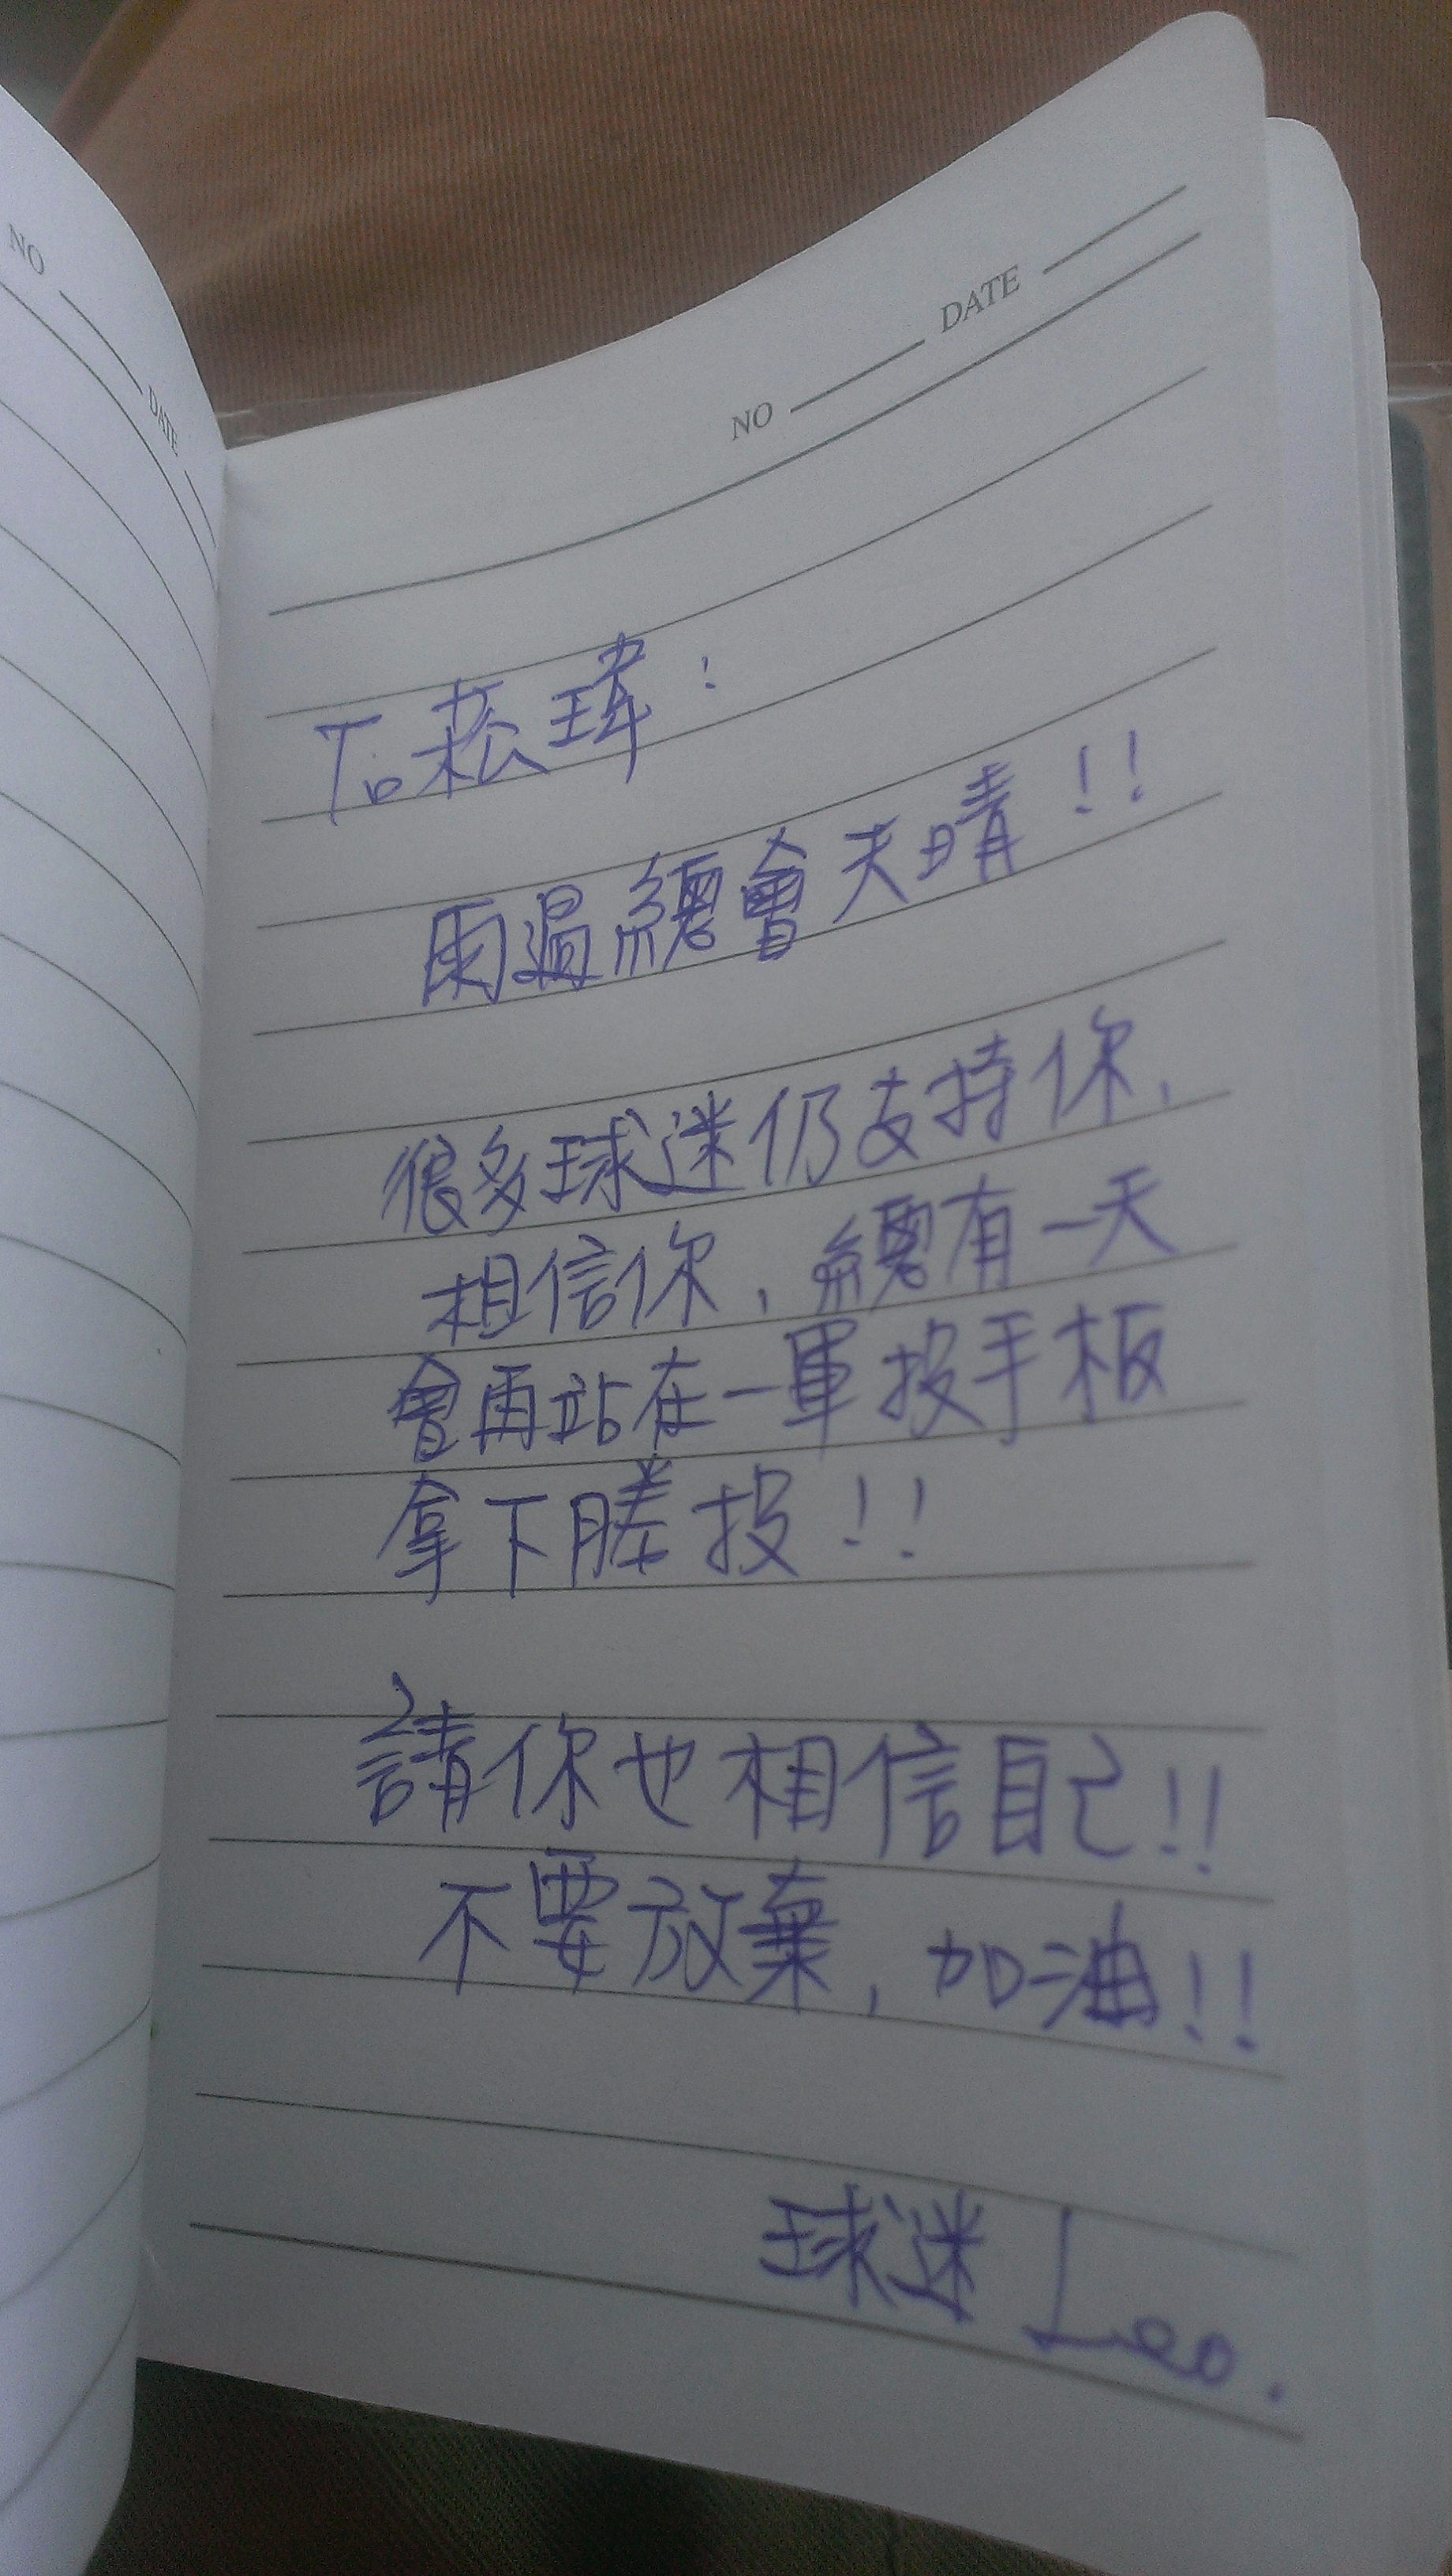 NO DATE
NO DATE
To 菘瑋：
雨過總會天晴!!
很多球迷仍支持你,
相信你,總有一天
會再站在一軍投手板
拿下勝投!!
請你也相信自己!!
不要放棄,加油!!
球迷 Leo.